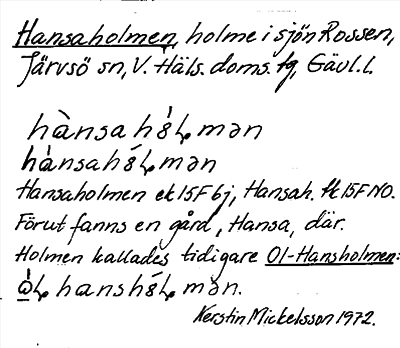 Hansaholmen, holme i sjön Rossen,
Järvsö sn, V. Häls. doms. tg, Gävl. l.
hànsah
hànsah
Hansaholmen ek 15F 6j, Hansah. tk 15F NO.
Förut fanns en gård, Hansa, där.
Holmen kallades tidigare Ol-Hansholmen:
Kerstin Mickelsson 1972.